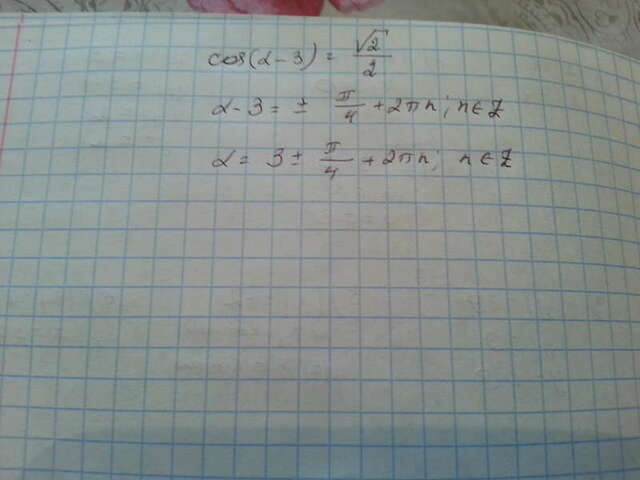 cos(α - 3) = √2/2
α - 3 = ± π/4 + 2πn; n ∈ Z
α = 3 ± π/4 + 2πn; n ∈ Z